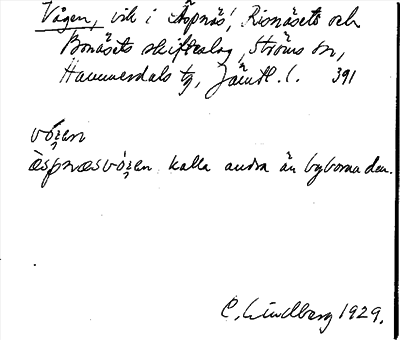 Vågen, vik i Äspnäs', Risnäsets och
Bonäsets skifteslag, Ströms sn,
Hammerdals tg, Jämtl. l. 391
vó̜ʒen
æspnæsvó̜ʒen kalla andra än byborna den.
C. Lindberg 1929.